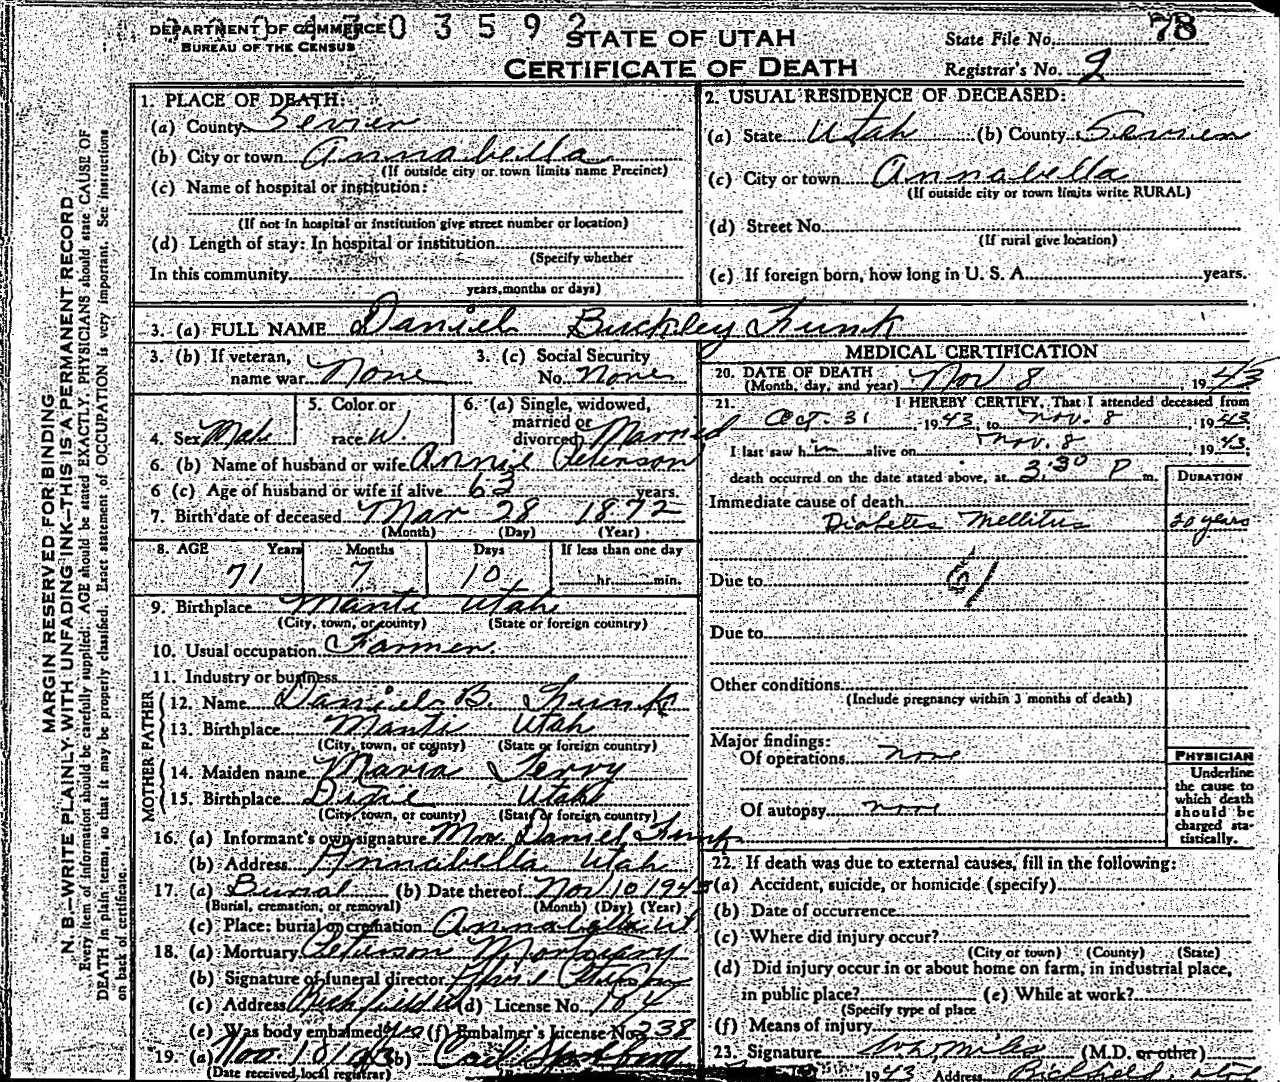 DEPARTMENT OF COMMERCE
BUREAU OF THE CENSUS
0 3 5 9 2
STATE OF UTAH
CERTIFICATE OF DEATH
State File No. 78
Registrar's No. 2
MARGIN RESERVED FOR BINDING
N. B.—WRITE PLAINLY, WITH UNFADING INK—THIS IS A PERMANENT RECORD
Every item of information should be carefully supplied. AGE should be stated EXACTLY. PHYSICIANS should state CAUSE OF
DEATH in plain terms, so that it may be properly classified. Exact statement of OCCUPATION is very important. See instructions
on back of certificate.
1. PLACE OF DEATH:
(a) County Sevier
(b) City or town Annabella
(If outside city or town limits name Precinct)
(c) Name of hospital or institution:
(If not in hospital or institution give street number or location)
(d) Length of stay: In hospital or institution
(Specify whether
In this community
years, months or days)
2. USUAL RESIDENCE OF DECEASED:
(a) State Utah (b) County Sevier
(c) City or town Annabella
(If outside city or town limits write RURAL)
(d) Street No.
(If rural give location)
(e) If foreign born, how long in U. S. A. years.
3. (a) FULL NAME Daniel Buckley Funk
3. (b) If veteran, name war None
3. (c) Social Security No. None
4. Sex Male
5. Color or race W.
6. (a) Single, widowed, married or divorced Married
6. (b) Name of husband or wife Annie Peterson
6 (c) Age of husband or wife if alive 63 years.
7. Birth date of deceased Mar 28 1872
(Month) (Day) (Year)
8. AGE Years Months Days If less than one day
71 7 10 hr. min.
9. Birthplace Manti Utah
(City, town, or county) (State or foreign country)
10. Usual occupation Farmer.
11. Industry or business
FATHER
12. Name Daniel B. Funk
13. Birthplace Manti Utah
(City, town, or county) (State or foreign country)
MOTHER
14. Maiden name Maria Terry
15. Birthplace Dixie Utah
(City, town, or county) (State or foreign country)
16. (a) Informant's own signature Mrs. Daniel Funk
(b) Address Annabella Utah
17 (a) Burial (b) Date thereof Nov 10 1943
(Burial, cremation, or removal) (Month) (Day) (Year)
(c) Place: burial or cremation Annabella Ut
18. (a) Mortuary Peterson Mortuary
(b) Signature of funeral director
(c) Address Richfield (d) License No. 104
(e) Was body embalmed yes (f) Embalmer's License No. 238
19. (a) Nov. 10 1943 (b)
(Date received local registrar)
MEDICAL CERTIFICATION
20. DATE OF DEATH
(Month, day, and year) Nov 8, 1943
21. I HEREBY CERTIFY, That I attended deceased from
Oct. 31 1943, to Nov. 8, 1943,
I last saw him alive on Nov. 8 1943;
death occurred on the date stated above, at 3:30 P m.
DURATION
Immediate cause of death
Diabetes Mellitus 20 years
Due to 61
Due to
Other conditions
(Include pregnancy within 3 months of death)
Major findings:
Of operations none
Of autopsy none
PHYSICIAN
Underline
the cause to
which death
should be
charged sta-
tistically.
22. If death was due to external causes, fill in the following:
(a) Accident, suicide, or homicide (specify)
(b) Date of occurrence
(c) Where did injury occur?
(City or town) (County) (State)
(d) Did injury occur in or about home on farm, in industrial place,
in public place? (e) While at work?
(Specify type of place
(f) Means of injury
23. Signature (M.D. or other)
1943 Address Richfield, Utah